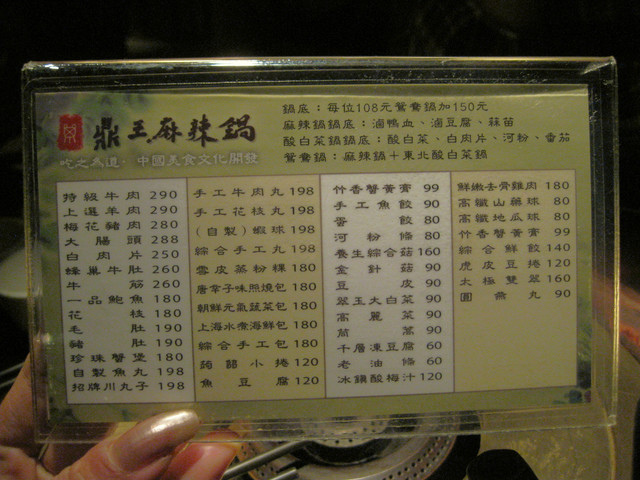 鼎王麻辣鍋
吃之為道·中國美食文化開發
鍋底：每位108元鴛鴦鍋加150元
麻辣鍋鍋底：滷鴨血、滷豆腐、蒜苗
酸白菜鍋鍋底：酸白菜、白肉片、河粉、番茄
鴛鴦鍋：麻辣鍋＋東北酸白菜鍋
特級牛肉 290
上選羊肉 290
梅花豬肉 280
大腸頭 288
白肉片 250
蜂巢牛肚 260
牛筋 260
一品鮑魚 180
花枝 180
毛肚 190
豬肚 190
珍珠蟹堡 180
自製魚丸 198
招牌川丸子 198
手工牛肉丸 198
手工花枝丸 198
（自製）蝦球 198
綜合手工丸 198
雲皮蒸粉粿 180
唐辛子味燒包 180
朝鮮元氣蔬菜包 180
上海水煮海鮮包 180
綜合手工包 180
蒟蒻小捲 120
魚豆腐 120
竹香蟹黃膏 99
手工魚餃 90
蛋餃 80
河粉條 80
養生綜合菇 160
金針菇 90
豆皮 90
翠玉大白菜 90
高麗菜 90
茼蒿 90
千層凍豆腐 60
老油條 60
冰鎮酸梅汁 120
鮮嫩去骨雞肉 180
高纖山藥球 80
高纖地瓜球 80
竹香蟹黃膏 99
綜合鮮餃 140
虎皮豆捲 120
太極雙翠 160
圓 丸 90